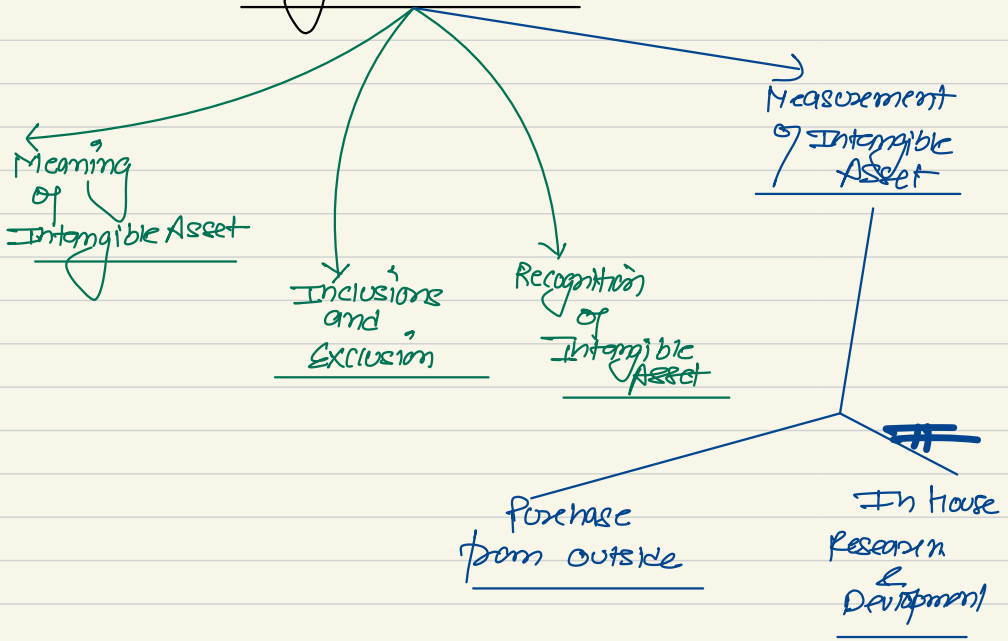 Meaning
of
Intangible Asset
Inclusions
and
Exclusion
Recognition
of
Intangible
Asset
Measurement
of Intangible
Asset
Purchase
from outside
In House
Research
&
Devlopment